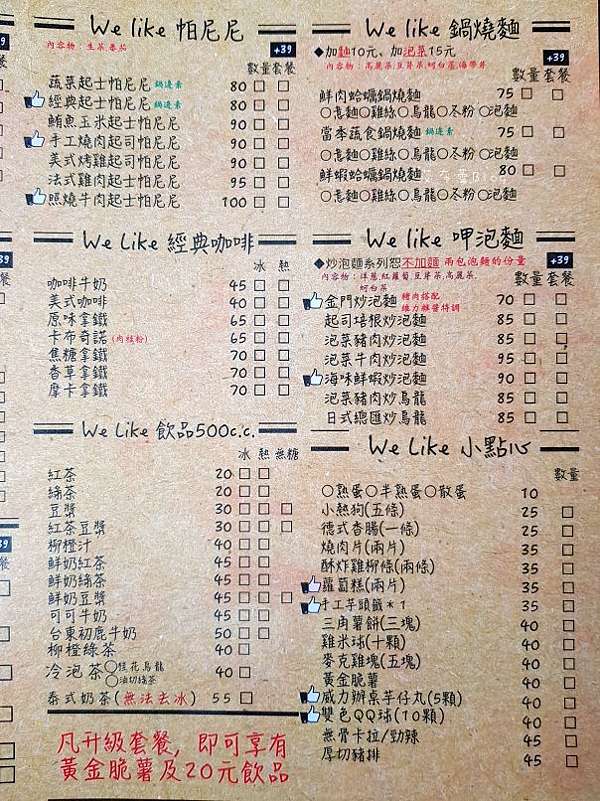 We like 帕尼尼
內容物：生菜.番茄
+39
數量 套餐
蔬菜起士帕尼尼 鍋邊素 80 □ □
經典起士帕尼尼 鍋邊素 80 □ □
鮪魚玉米起士帕尼尼 90 □ □
手工燒肉起司帕尼尼 90 □ □
美式烤雞起司帕尼尼 90 □ □
法式雞肉起士帕尼尼 95 □ □
照燒牛肉起士帕尼尼 100 □ □
We Like 經典咖啡
冰 熱
咖啡牛奶 45 □ □
美式咖啡 40 □ □
原味拿鐵 65 □ □
卡布奇諾(肉桂粉) 65 □ □
焦糖拿鐵 70 □ □
香草拿鐵 70 □ □
摩卡拿鐵 70 □ □
We Like 飲品500c.c.
冰 熱 無糖
紅茶 20 □ □
綠茶 20 □ □
豆漿 30 □ □ □
紅茶豆漿 30 □ □
柳橙汁 40 □
鮮奶紅茶 45 □ □
鮮奶綠茶 45 □ □
鮮奶豆漿 45 □ □ □
可可牛奶 45 □ □
台東初鹿牛奶 50 □ □
柳橙綠茶 40 □
冷泡茶 ○桂花烏龍 40 □
○油切綠茶
泰式奶茶(無法去冰) 55 □
凡升級套餐，即可享有
黃金脆薯及20元飲品
We like 鍋燒麵
◆加麵10元、加泡菜15元
+39
數量 套餐
鮮肉蛤蠣鍋燒麵 75 □ □
○意麵○雞絲○烏龍○冬粉○泡麵
當季蔬食鍋燒麵 鍋邊素 75 □ □
○意麵○雞絲○烏龍○冬粉○泡麵
鮮蝦蛤蠣鍋燒麵 80 □ □
○意麵○雞絲○烏龍○冬粉○泡麵
We Like 呷泡麵
+39
◆炒泡麵系列恕不加麵 兩包泡麵的份量
內容物：洋蔥.紅蘿蔔.豆芽菜.高麗菜.
數量 套餐
金門炒泡麵 豬肉搭配 70 □ □
維力雜醬特調
起司培根炒泡麵 85 □ □
泡菜豬肉炒泡麵 85 □ □
泡菜牛肉炒泡麵 95 □ □
海味鮮蝦炒泡麵 90 □ □
泡菜豬肉炒烏龍 85 □ □
日式總匯炒烏龍 85 □ □
We Like 小點心
數量
○熟蛋○半熟蛋○散蛋 10
小熱狗(五條) 25 □
德式香腸(一條) 25 □
燒肉片(兩片) 35 □
酥炸雞柳條(兩條) 35 □
蘿蔔糕(兩片) 35 □
手工芋頭籤＊1 35 □
三角薯餅(三塊) 40 □
雞米球(十顆) 40 □
麥克雞塊(五塊) 40 □
黃金脆薯 40 □
威力辦桌芋仔丸(5顆) 40 □
雙色QQ球(10顆) 40 □
無骨卡拉/勁辣 45 □
厚切豬排 45 □